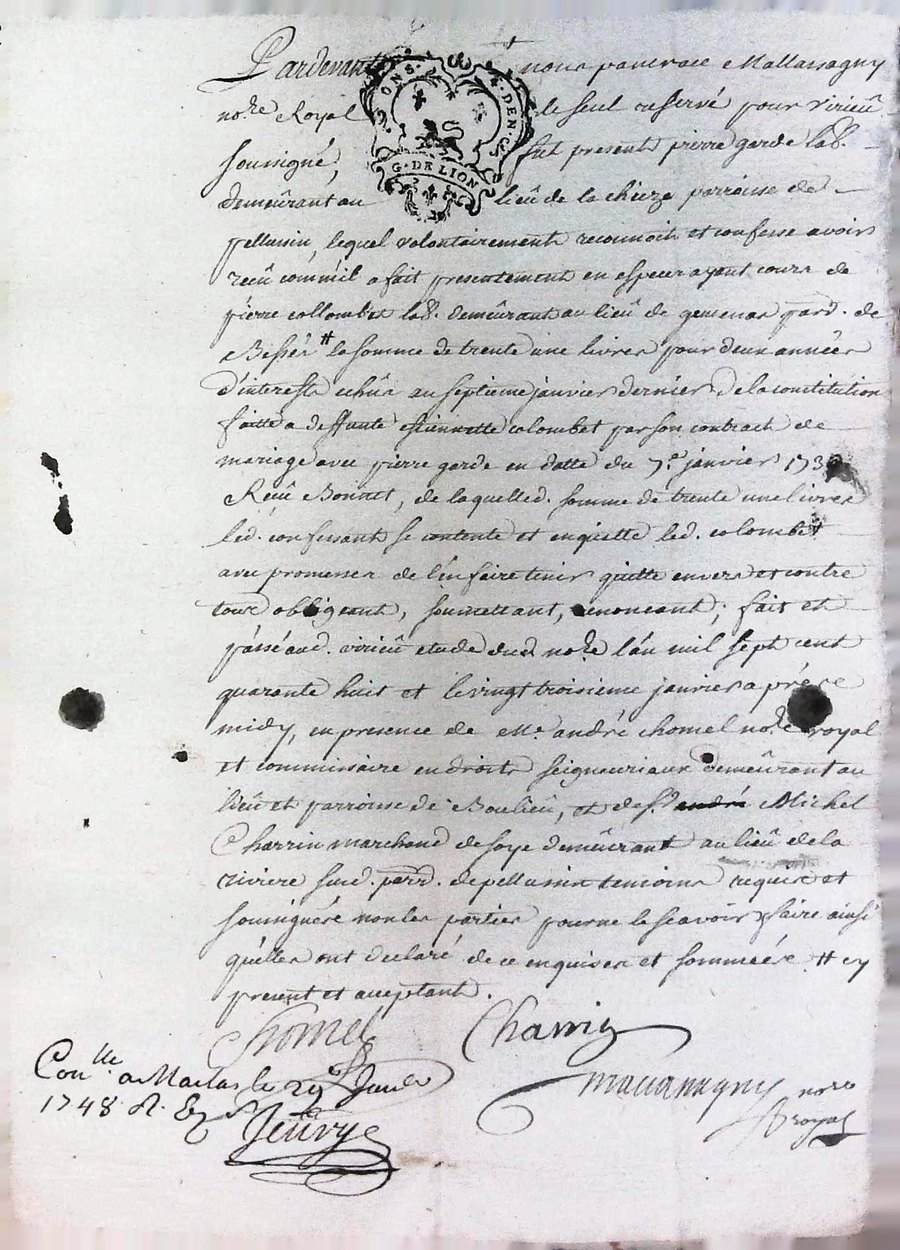 Pardevant nous pancrace Mallassagny
no.re Royal le seul reservé pour virieû
soussigné, fut present pierre garde lab.r
demeûrant au lieu de la chieze parroisse de
pellussin, lequel volontairement reconnoit et confesse avoir
reçû comme il a fait presentement en especes ayant cours de
pierre collombet lab.r demeûrant au lieu de gemenas parr. de
Bessey # la somme de trente une livres pour deux années
d'interests echûs au septieme janvier dernier de la constitution
faitte a deffunte estiennette colombet par son contrach de
mariage avec pierre garde en datte du 7.e janvier
Reçû Bonnet, de laquelle d. somme de trente une livres
led. confessant se contente et en quitte led. colombet
avec promesses de l'en faire tenir quitte envers et contre
tous obligeant, soumettant, renonçant; fait et
passé aud. virieû etude dud no.re l'an mil sept cent
quarante huit et le vingt troisieme janvier apres
midy, en presence de M.e andré chomel no.re royal
et commissaire en droits seigneuriaux demeûrant au
lieu et parroisse de Boulieû, et de s.r Michel
Charrin marchand de soye demeûrant au lieu de la
riviere sud. parr. de pellussin temoins requis et
soussignés non les parties pour ne le scavoir faire ainsi
qu'elles ont declaré de ce enquises et sommées. # cy
present et acceptant.
Chomel Charrin
Con.lle a Maclas le 29 Janv.
1748 R.
Mallassagny no.re
royal